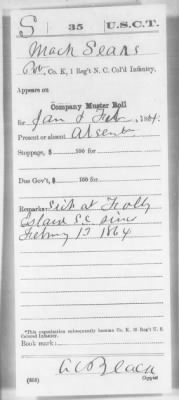 S | 35 | U.S.C.T.
Mack Sears
Pvt., Co. K, 1 Reg't N. C. Col'd Infantry.
Appears on
Company Muster Roll
for Jan & Feb, 1864.
Present or absent Absent
Stoppage, $ 100 for
Due Gov't, $ 100 for
Remarks: Sick at Folly
Island S.C. since
Febuy 13 1864
*This organization subsequently became Co. K, 35 Reg't U. S.
Colored Infantry.
Book mark:
Copyist.